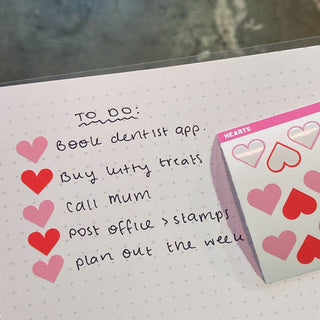 TO DO:
Book dentist app.
Buy kitty treats
Call mum
post office > stamps
plan out the week
HEARTS